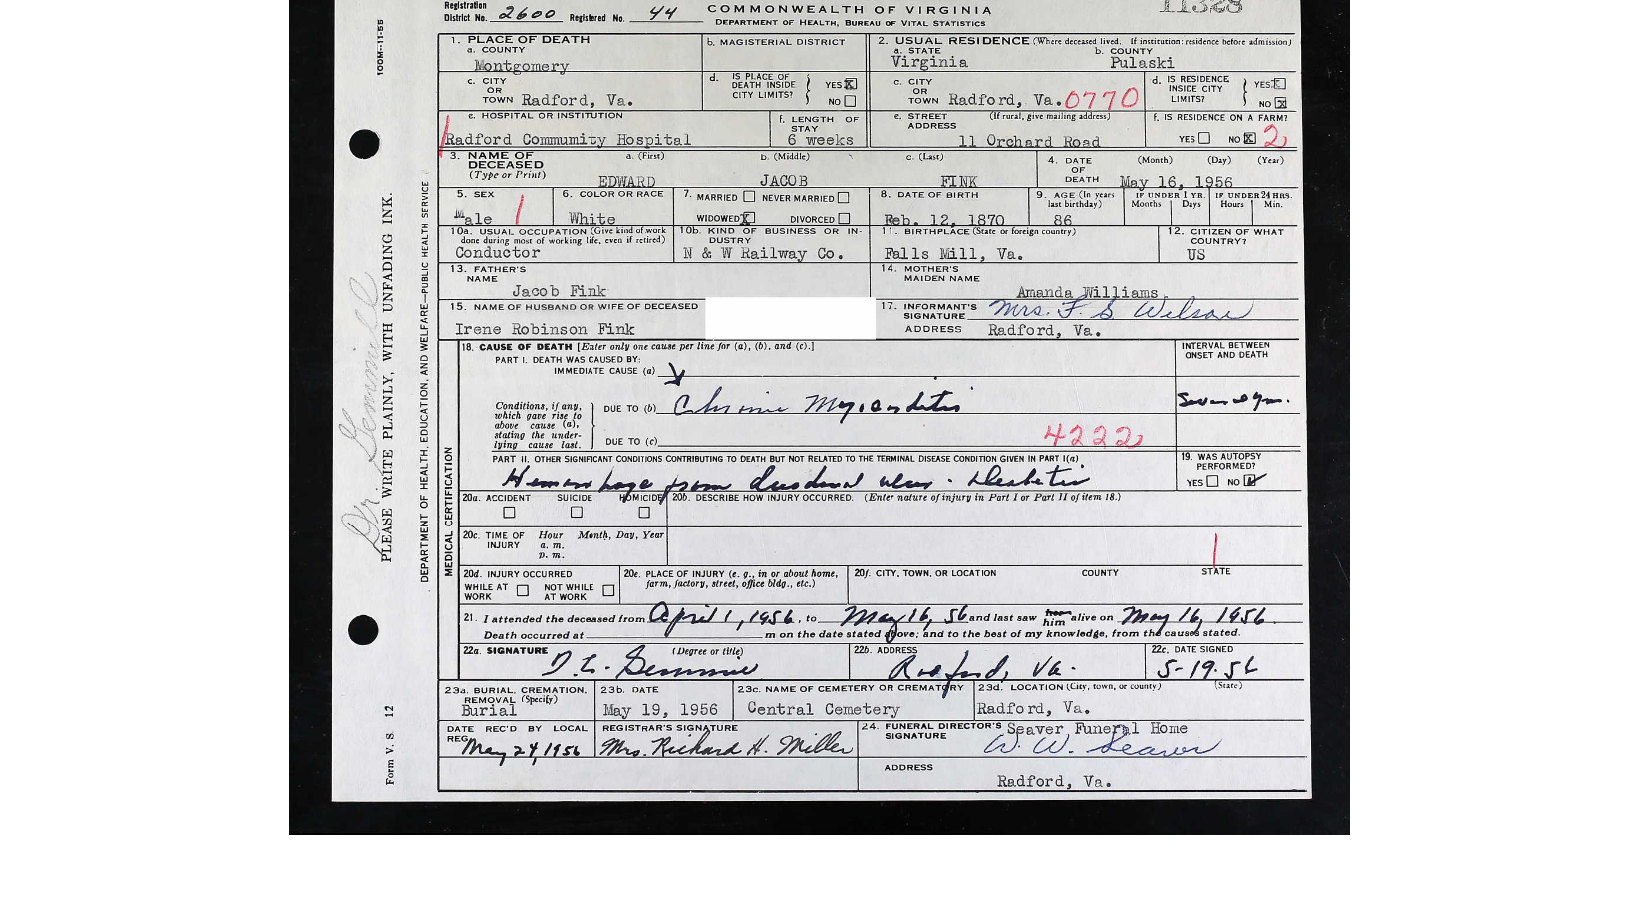 Registration
District No. 2600 Registered No. 44
COMMONWEALTH OF VIRGINIA
DEPARTMENT OF HEALTH, BUREAU OF VITAL STATISTICS
11328
100M--11-55
1. PLACE OF DEATH
a. COUNTY
Montgomery
b. MAGISTERIAL DISTRICT
2. USUAL RESIDENCE (Where deceased lived. If institution: residence before admission)
a. STATE b. COUNTY
Virginia Pulaski
c. CITY OR TOWN Radford, Va.
d. IS PLACE OF DEATH INSIDE CITY LIMITS? YES X NO
c. CITY OR TOWN Radford, Va. 0770
d. IS RESIDENCE INSIDE CITY LIMITS? YES NO X
e. HOSPITAL OR INSTITUTION
Radford Community Hospital
f. LENGTH OF STAY
6 weeks
e. STREET ADDRESS (If rural, give mailing address)
11 Orchard Road
f. IS RESIDENCE ON A FARM?
YES NO X 2
3. NAME OF DECEASED (Type or Print)
a. (First) b. (Middle) c. (Last)
EDWARD JACOB FINK
4. DATE OF DEATH (Month) (Day) (Year)
May 16, 1956
5. SEX
Male 1
6. COLOR OR RACE
White
7. MARRIED NEVER MARRIED
WIDOWED X DIVORCED
8. DATE OF BIRTH
Feb. 12, 1870
9. AGE (In years last birthday)
86
IF UNDER 1 YR. Months Days
IF UNDER 24 HRS. Hours Min.
10a. USUAL OCCUPATION (Give kind of work done during most of working life, even if retired)
Conductor
10b. KIND OF BUSINESS OR INDUSTRY
N & W Railway Co.
11. BIRTHPLACE (State or foreign country)
Falls Mill, Va.
12. CITIZEN OF WHAT COUNTRY?
US
13. FATHER'S NAME
Jacob Fink
14. MOTHER'S MAIDEN NAME
Amanda Williams
15. NAME OF HUSBAND OR WIFE OF DECEASED
Irene Robinson Fink
17. INFORMANT'S SIGNATURE Mrs. F. S. Wilson
ADDRESS Radford, Va.
18. CAUSE OF DEATH [Enter only one cause per line for (a), (b), and (c).]
PART I. DEATH WAS CAUSED BY:
IMMEDIATE CAUSE (a)
INTERVAL BETWEEN ONSET AND DEATH
Conditions, if any, which gave rise to above cause (a), stating the underlying cause last.
DUE TO (b) Chronic Myocarditis
Several Yrs.
DUE TO (c) 4222
PART II. OTHER SIGNIFICANT CONDITIONS CONTRIBUTING TO DEATH BUT NOT RELATED TO THE TERMINAL DISEASE CONDITION GIVEN IN PART I(a)
Hemorrhage from duodenal ulcer - Diabetis
19. WAS AUTOPSY PERFORMED?
YES NO
20a. ACCIDENT SUICIDE HOMICIDE
20b. DESCRIBE HOW INJURY OCCURRED. (Enter nature of injury in Part I or Part II of item 18.)
20c. TIME OF INJURY Hour Month, Day, Year
a. m.
p. m.
20d. INJURY OCCURRED
WHILE AT WORK NOT WHILE AT WORK
20e. PLACE OF INJURY (e. g., in or about home, farm, factory, street, office bldg., etc.)
20f. CITY, TOWN, OR LOCATION COUNTY STATE
21. I attended the deceased from April 1, 1956, to May 16, 56 and last saw him alive on May 16, 1956
Death occurred at m on the date stated above; and to the best of my knowledge, from the causes stated.
22a. SIGNATURE (Degree or title)
22b. ADDRESS
Radford, Va.
22c. DATE SIGNED
5-19-56
23a. BURIAL, CREMATION, REMOVAL (Specify)
Burial
23b. DATE
May 19, 1956
23c. NAME OF CEMETERY OR CREMATORY
Central Cemetery
23d. LOCATION (City, town, or county) (State)
Radford, Va.
DATE REC'D BY LOCAL REG.
May 24, 1956
REGISTRAR'S SIGNATURE
Mrs. Richard H. Miller
24. FUNERAL DIRECTOR'S SIGNATURE
Seaver Funeral Home
W. W. Seaver
ADDRESS
Radford, Va.
MEDICAL CERTIFICATION
DEPARTMENT OF HEALTH, EDUCATION, AND WELFARE—PUBLIC HEALTH SERVICE
PLEASE WRITE PLAINLY, WITH UNFADING INK.
Form V. S. 12